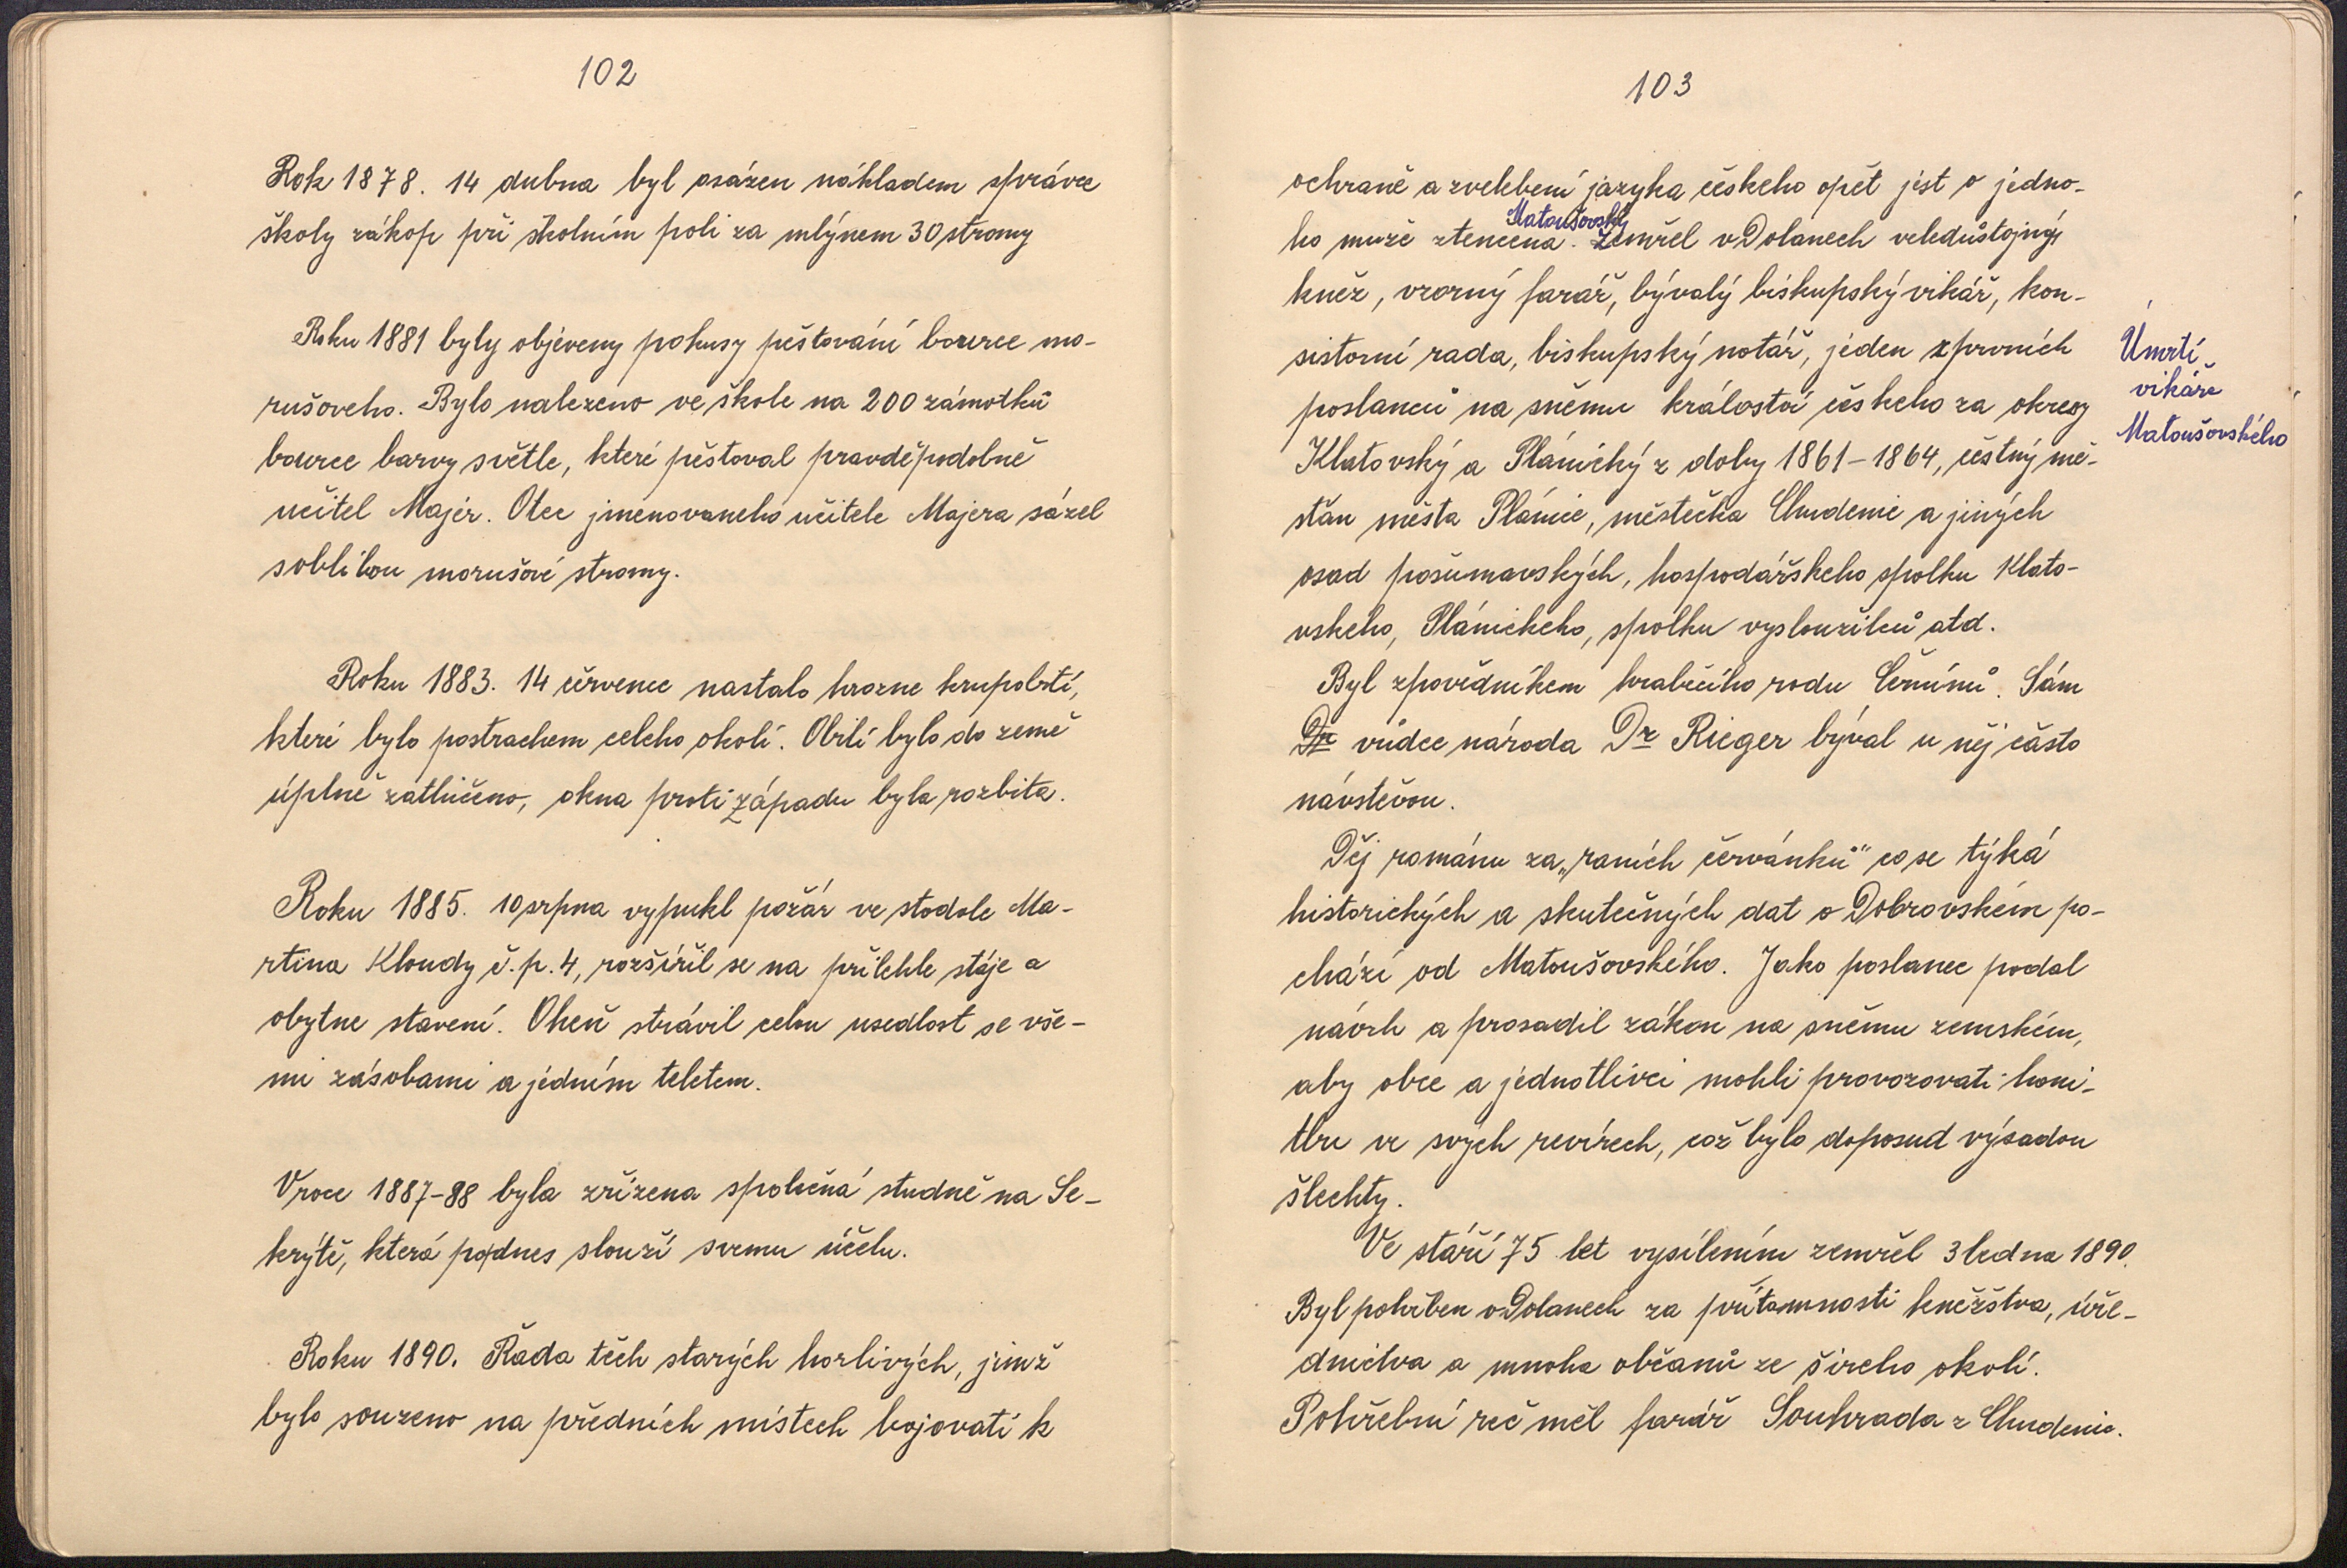 102
Rok 1878. 14 dubna byl osázen nákladem správce
školy zákop při školním poli za mlýnem 30 stromy
Roku 1881 byly objeveny pokusy pěstování bource mo-
rušoveho. Bylo nalezeno ve škole na 200 zámotků
bource barvy světle, které pěstoval pravděpodobně
učitel Majer. Otec jmenovaneho učitele Majera sázel
s oblibou morušové stromy.
Roku 1883. 14 července nastalo hrozne krupobití,
které bylo postrachem celeho okolí. Obilí bylo do země
úplně zatlučeno, okna proti západu byla rozbita.
Roku 1885. 10 srpna vypukl požár ve stodole Ma-
rtina Kloudy č.p. 4, rozšířil se na přilehle stáje a
obytne stavení. Oheň strávil celou usedlost se vše-
mi zásobami a jedním teletem.
V roce 1887-88 byla zřízena společná studně na Se-
krýtě, která podnes slouží svemu účelu.
Roku 1890. Řada těch starých horlivých, jimž
bylo souzeno na předních místech bojovati k
103
ochraně a zvelebení jazyka českeho opět jest o jedno-
ho muže ztenčena. Zemřel v Dolanech veledůstojný
Matoušovský
kněz, vzorný farář, bývalý biskupský vikář, kon-
sistorní rada, biskupský notář, jeden z prvních
poslanců na sněmu králoství českeho za okresy
Klatovský a Plánický z doby 1861-1864, čestný mě-
šťan města Plánice, městečka Chudenic a jiných
osad pošumavských, hospodářskeho spolku Klato-
vskeho, Plánickeho, spolku vysloužilců atd.
Byl zpovědníkem hraběcího rodu Černínů. Sám
Dr vůdce národa Dr Rieger býval u něj často
návstěvou.
Děj románu za „raních červánků" co se týká
historických a skutečných dat o Dobrovském po-
chází od Matoušovského. Jako poslanec podal
návrh a prosadil zákon na sněmu zemském,
aby obce a jednotlivci mohli provozovati honi-
tbu ve svých revírech, což bylo doposud výsadou
šlechty.
Ve stáří 75 let vysílením zemřel 3 ledna 1890.
Byl pohřben v Dolanech za přítomnosti kněžstva, úře-
dnictva a mnoha občanů ze šireho okolí.
Pohřební reč měl farář Souhrada z Chudenic.
Úmrtí
vikáře
Matoušovského